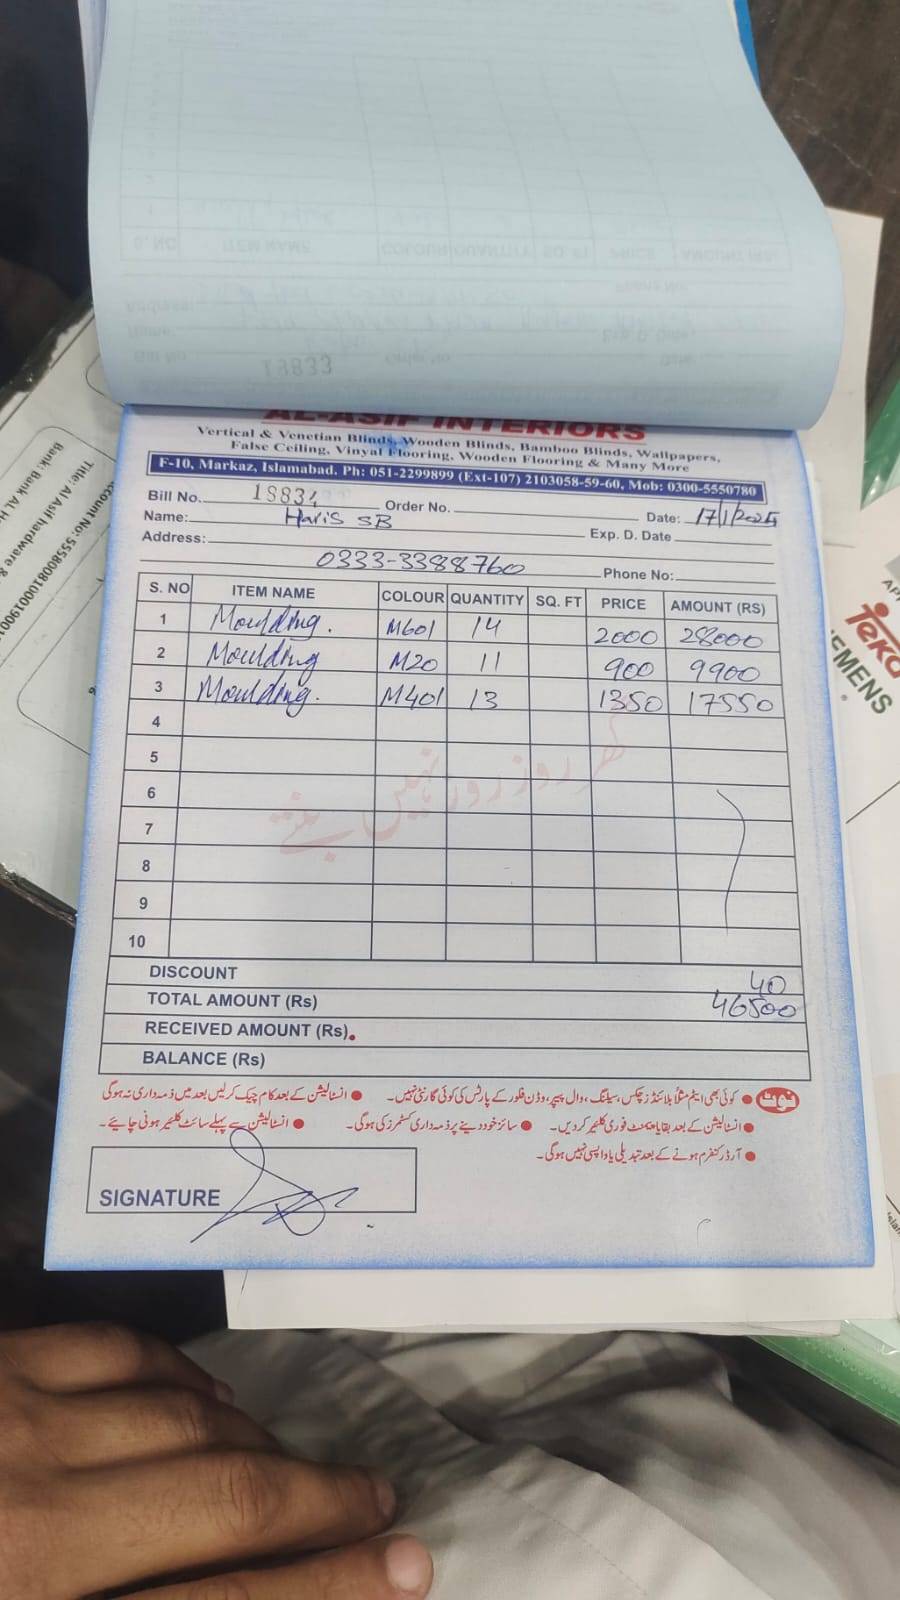 13833
AL-ASIF INTERIORS
Vertical & Venetian Blinds, Wooden Blinds, Bamboo Blinds, Wallpapers,
False Ceiling, Vinyal Flooring, Wooden Flooring & Many More
F-10, Markaz, Islamabad. Ph: 051-2299899 (Ext-107) 2103058-59-60, Mob: 0300-5550780
Bill No. 18834 Order No. Date: 17/1/2025
Name: Haris SB Exp. D. Date
Address:
0333-3388760 Phone No:
S. NO ITEM NAME COLOUR QUANTITY SQ. FT PRICE AMOUNT (RS)
1 Moulding. M601 14 2000 28000
2 Moulding M20 11 900 9900
3 Moulding. M401 13 1350 17550
4
5
گھر روز روز نہیں بنتے
6
7
8
9
10
DISCOUNT 40
TOTAL AMOUNT (Rs) 46500
RECEIVED AMOUNT (Rs).
BALANCE (Rs)
نوٹ ● کوئی بھی ایٹم مثلاً بلائنڈز چکس، سیلنگ، وال پیپر، وڈن فلور کے پارٹس کی کوئی گارنٹی نہیں۔ ● انسٹالیشن کے بعد کام چیک کرلیں بعد میں ذمہ داری نہ ہوگی
● انسٹالیشن کے بعد بقایا پیمنٹ فوری کلئیر کردیں۔ ● سائز خود دینے پر ذمہ داری کسٹمرز کی ہوگی۔ ● انسٹالیشن سے پہلے سائٹ کلئیر ہونی چاہیے۔
● آرڈر کنفرم ہونے کے بعد تبدیلی یا واپسی نہیں ہوگی۔
SIGNATURE
Teka
SIEMENS
Bank: Bank AL H
Title: Al Asif hardware &
count No: 5558008100019001